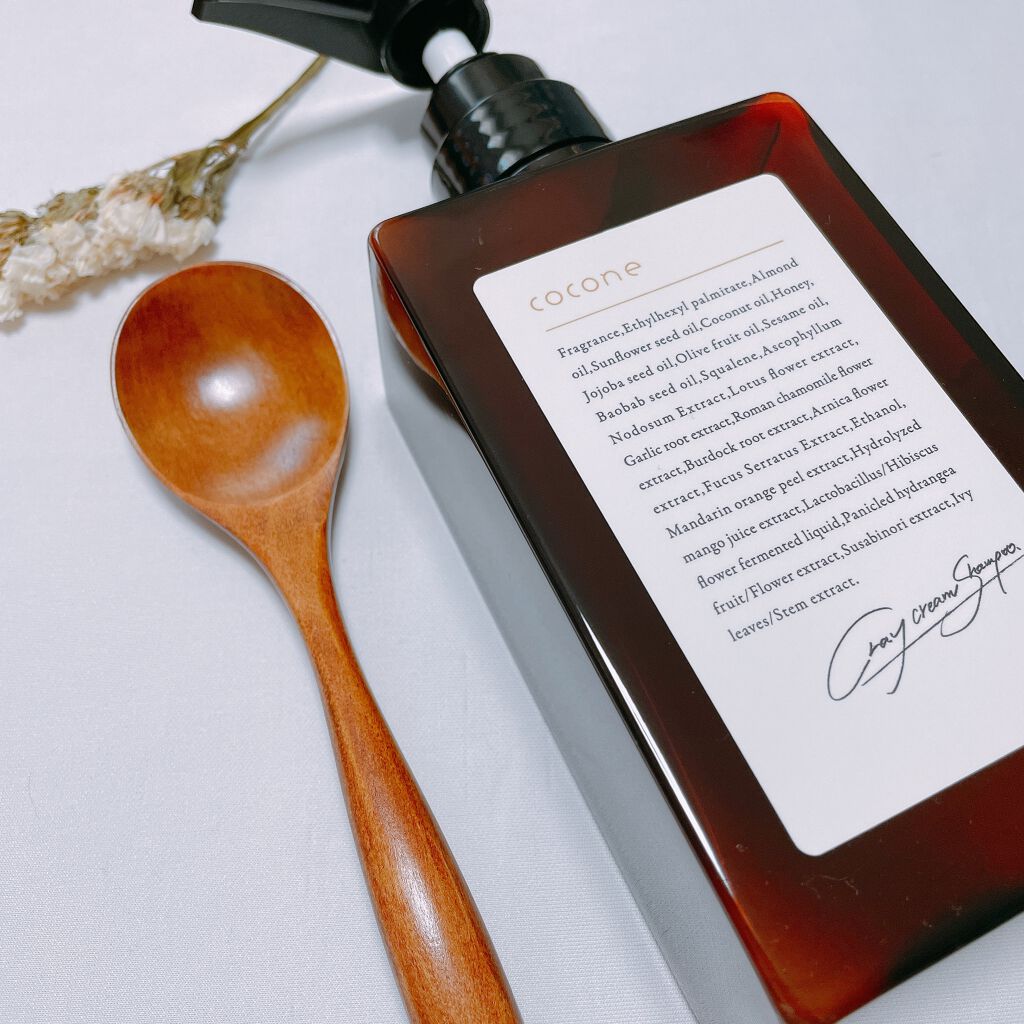 cocone
Fragrance,Ethylhexyl palmitate,Almond
oil,Sunflower seed oil,Coconut oil,Honey,
Jojoba seed oil,Olive fruit oil,Sesame oil,
Baobab seed oil,Squalene,Ascophyllum
Nodosum Extract,Lotus flower extract,
Garlic root extract,Roman chamomile flower
extract,Burdock root extract,Arnica flower
extract,Fucus Serratus Extract,Ethanol,
Mandarin orange peel extract,Hydrolyzed
mango juice extract,Lactobacillus/Hibiscus
flower fermented liquid,Panicled hydrangea
fruit/Flower extract,Susabinori extract,Ivy
leaves/Stem extract.
Cray cream Shampoo.